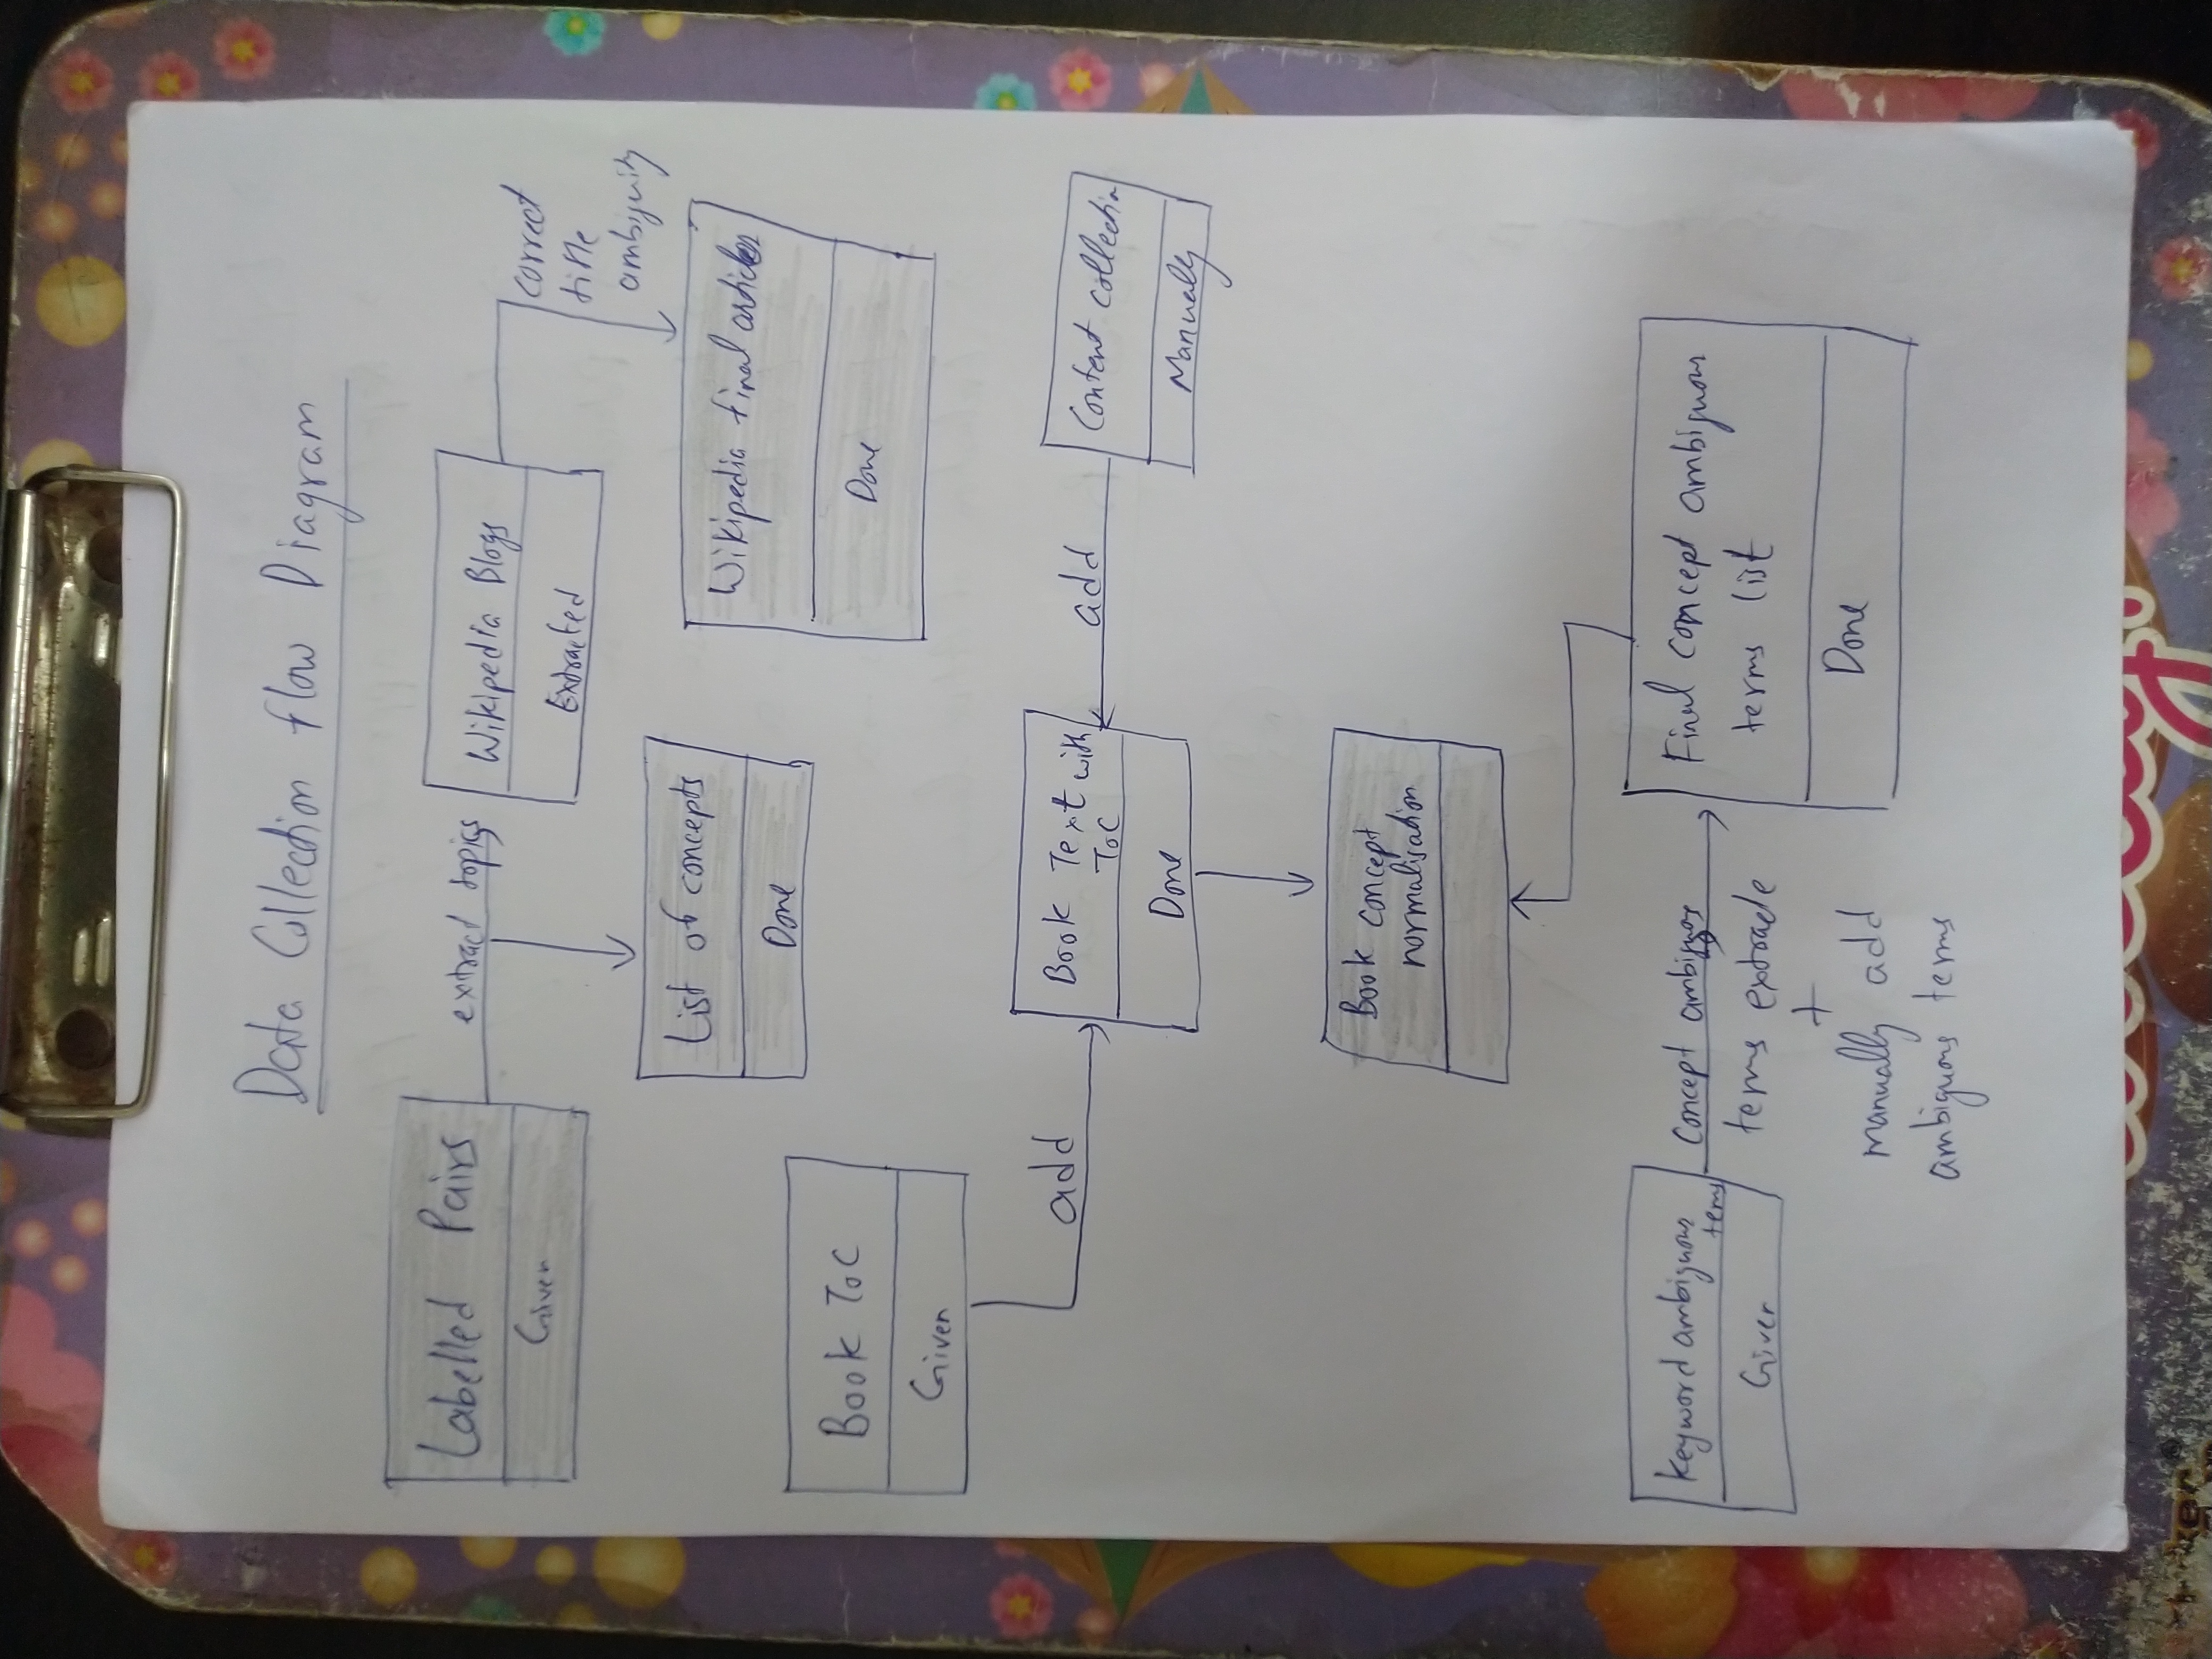 Data Collection flow Diagram
Labelled Pairs
Given
extract topics
Wikipedia Blogs
Extracted
correct
title
ambiguity
List of concepts
Done
Wikipedia final articles
Done
Book ToC
Given
add
Book Text with
ToC
Done
add
Content collection
Manually
Book concept
normalisation
Keyword ambiguous
terms
Given
Concept ambiguous
terms
+
manually add
ambiguous terms
Final concept ambiguous
terms list
Done